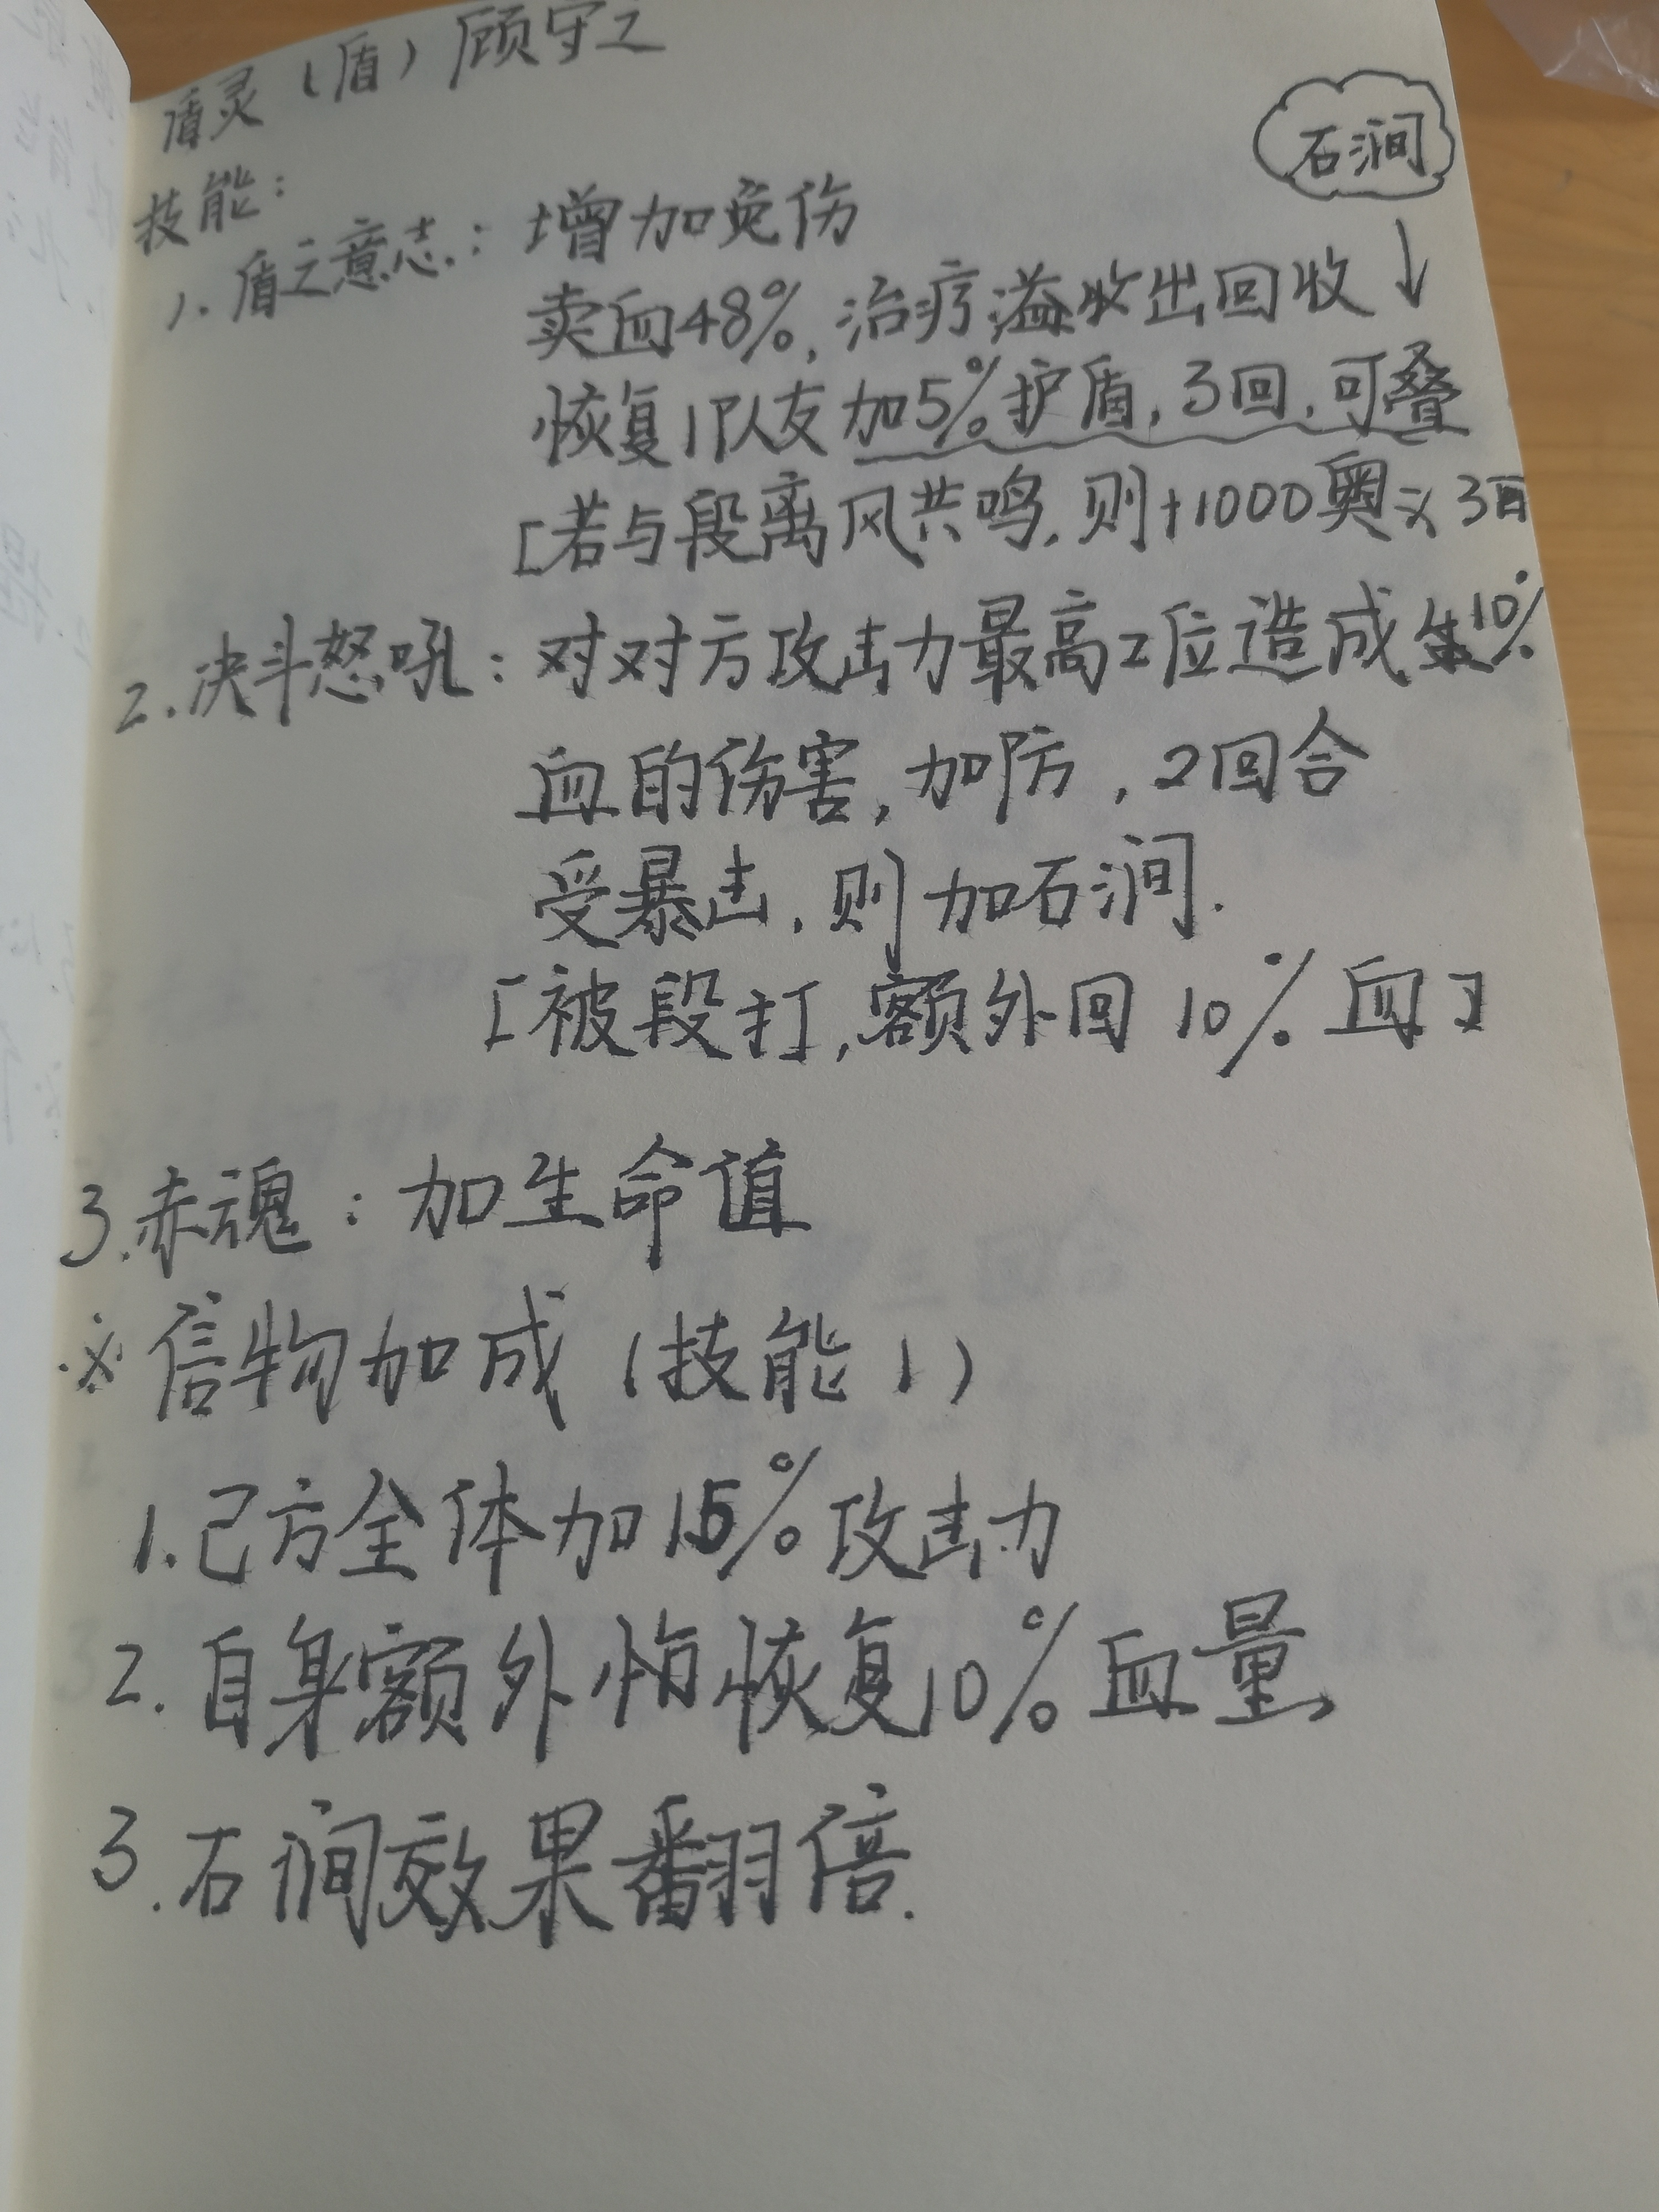 盾灵（盾）顾守之
石涧
技能：
1.盾之意志：增加免伤
卖血48%，治疗溢出回收↓
恢复，队友加5%护盾，3回，可叠
[若与段离风共鸣，则+1000奥义3回
2.决斗怒吼：对对方攻击力最高2位造成10%
血的伤害，加防，2回合
受暴击，则加石涧.
[被段打，额外回10%血]
3.赤魂：加生命值
※信物加成（技能1）
1.己方全体加15%攻击力
2.自身额外恢复10%血量
3.石涧效果翻倍.